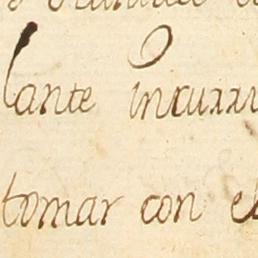 lante incurri
tomar con el